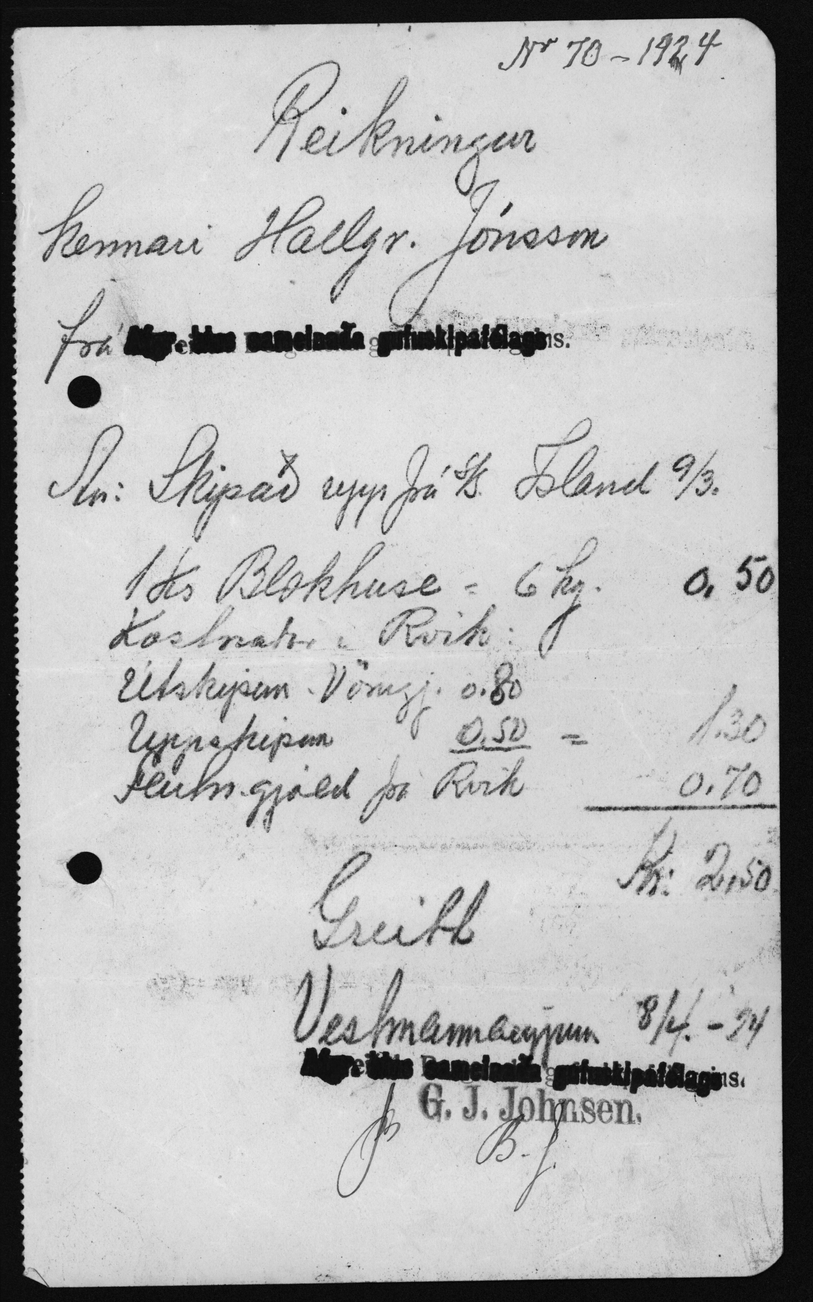 Nr 70 - 1924
Reikningur
kennari Hallgr. Jónsson
frá Afgr. hins sameinaða gufuskipafélags.
An: Skipað upp frá s/s. Island 9/3.
1 ks Blokhuse = 6 kg. 0.50
Rvík:
Útskipun. Vörugj. 0.80
Uppskipun 0.50 = 1.30
gjald frá Rvík 0.70
Kr: 2,50
Greitt
Vestmannaeyjum 8/4. - 24
Afgr. hins sameinaða gufuskipafélags.
G. J. Johnsen.
B. J.